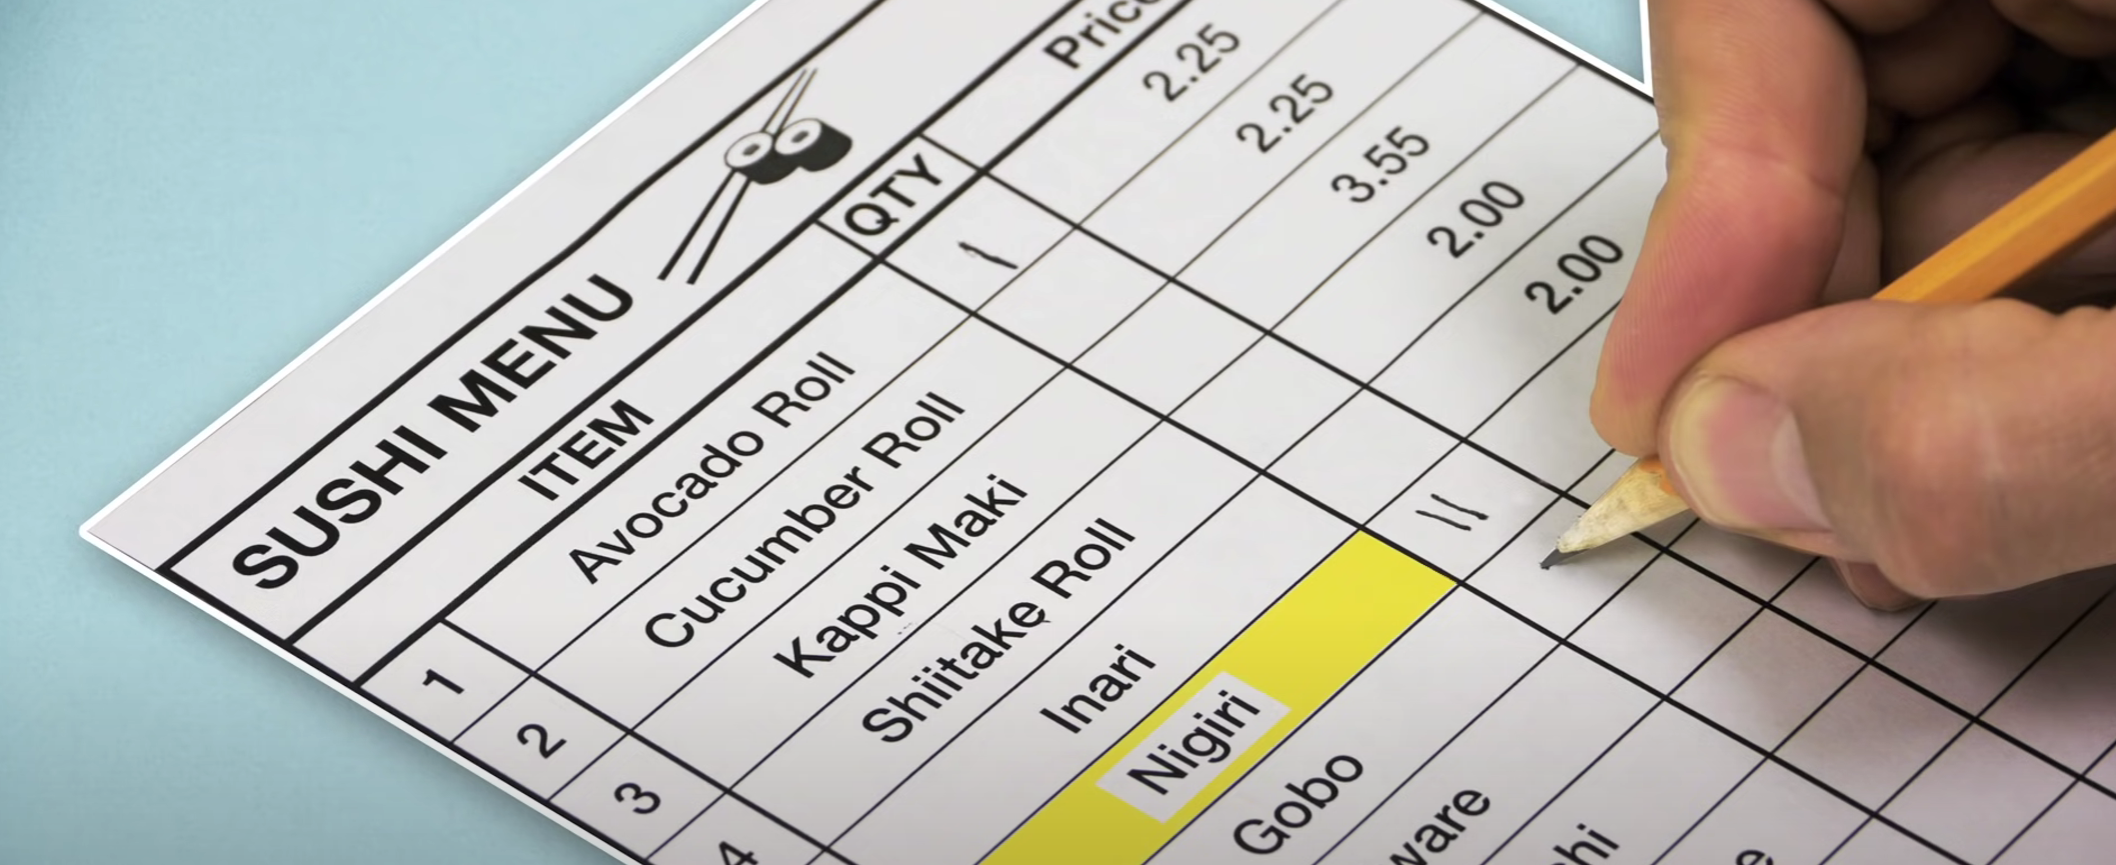 SUSHI MENU
ITEM QTY Price
1 Avocado Roll 2.25
2 Cucumber Roll 2.25
3 Kappi Maki 3.55
4 Shiitake Roll 2.00
Inari 2.00
Nigiri
Gobo